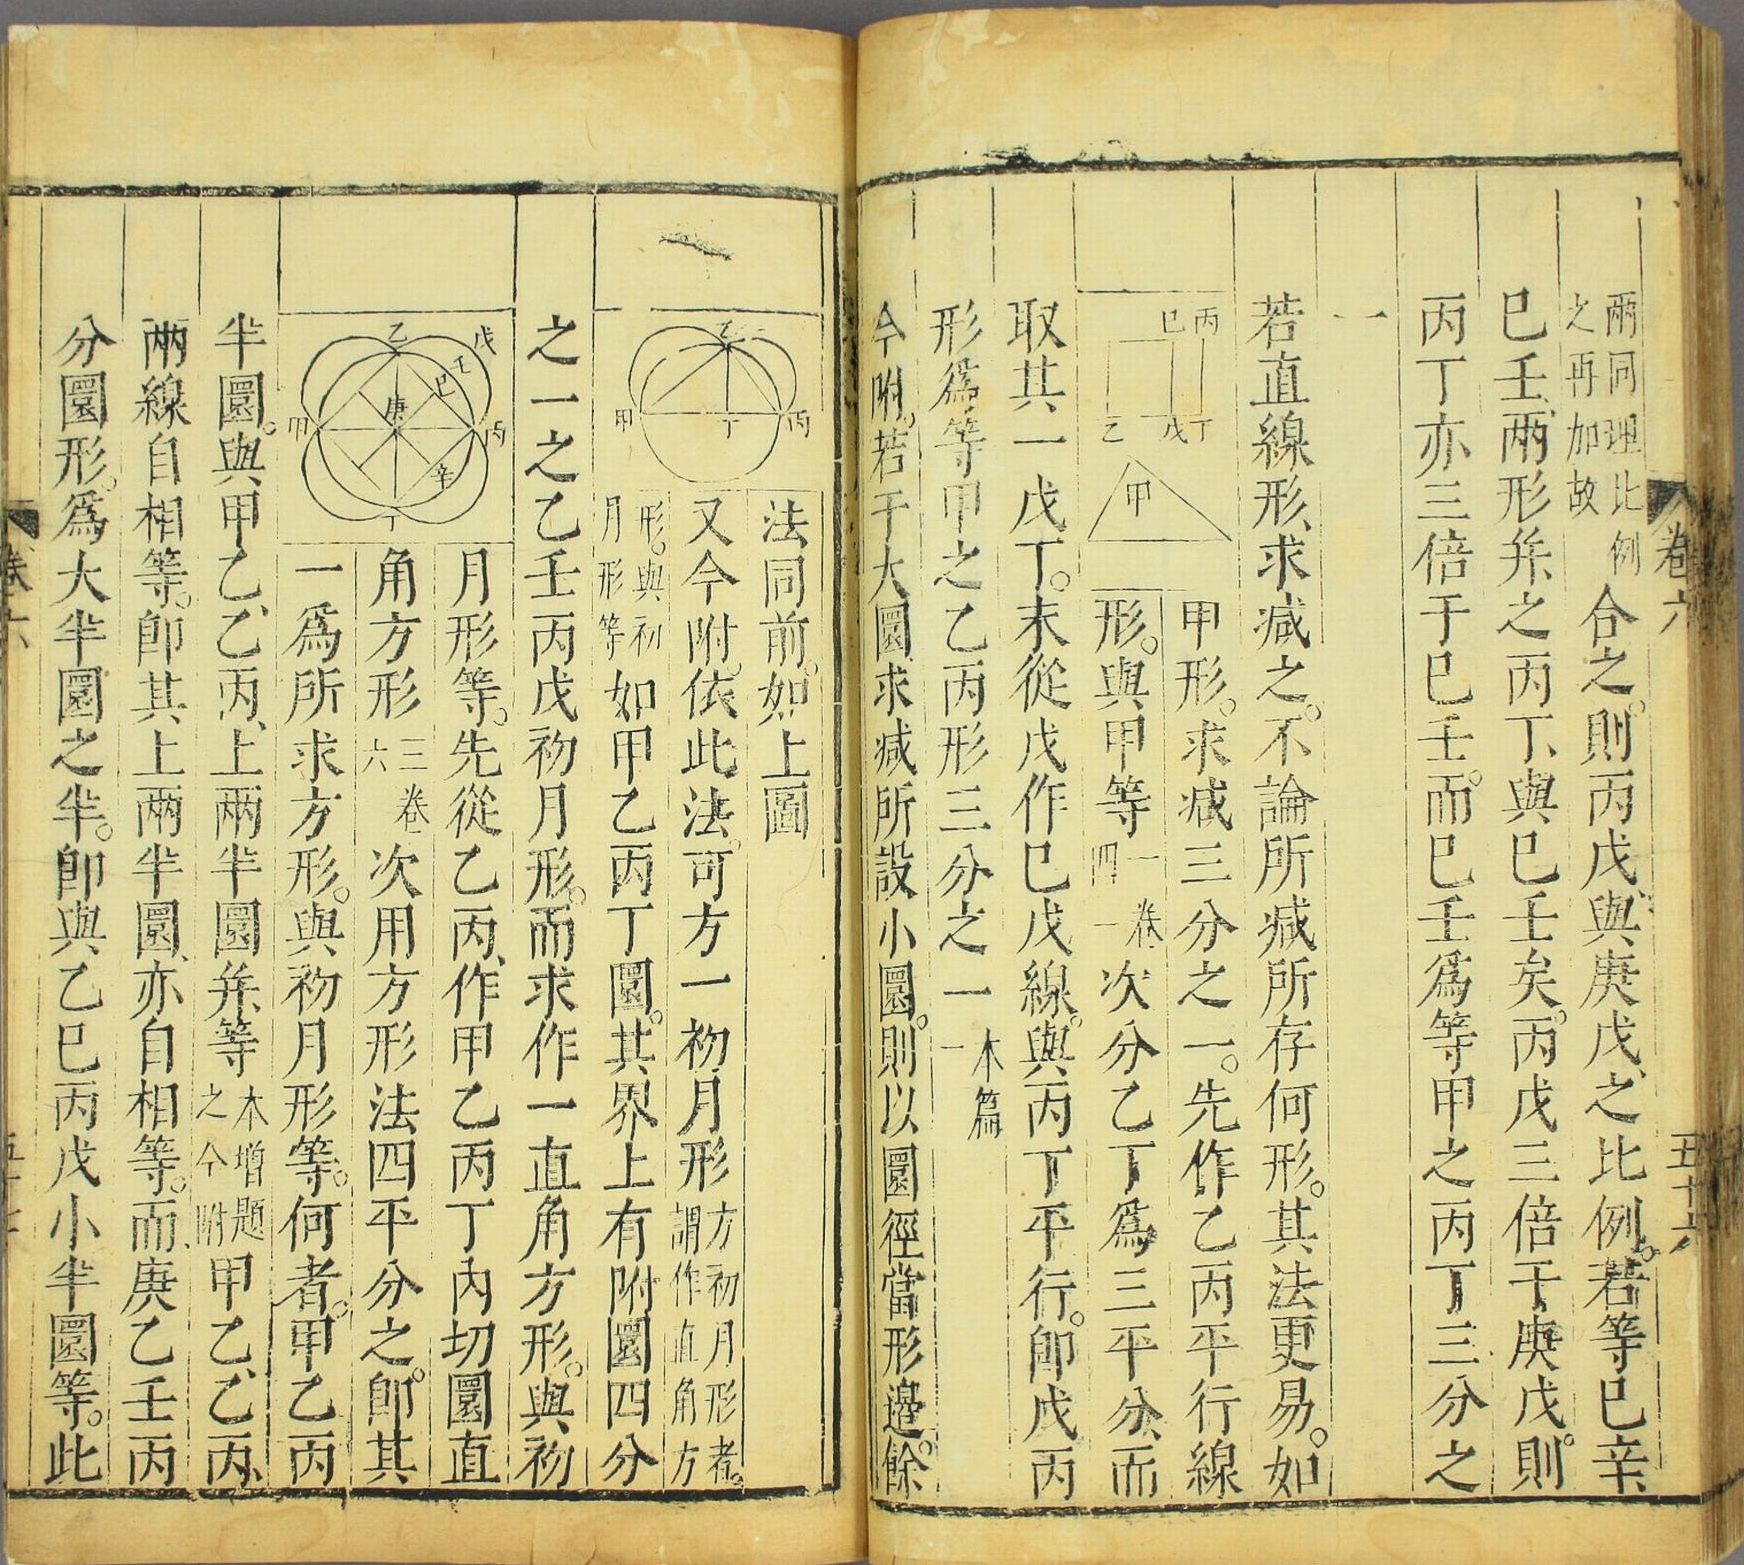 卷六
五十六
兩同理比例
之再加故
合之。則丙戊、與庚戊、之比例。若等己辛
己壬、兩形并、之丙丁、與己壬矣。丙戊三倍于庚戊。則
丙丁亦三倍于己壬。而己壬爲等甲之丙丁三分之
一
若直線形、求减之。不論所减所存何形。其法更易。如
丙
己
丁
戊
乙
甲
甲形。求减三分之一。先作乙丙平行線
形。與甲等
一卷
四一
次分乙丁爲三平分、而
取其一戊丁。末從戊作己戊線。與丙丁平行。卽戊丙
形爲等甲之乙丙形三分之一
本篇
一
今附。若于大圜求减所設小圜。則以圜徑當形邊。餘
法同前。如上圖
乙
甲
丁
丙
又今附。依此法。可方一初月形
方初月形者。
謂作直角方
形。與初
月形等
如甲乙丙丁圜。其界上有附圜四分
之一之乙壬丙戊初月形。而求作一直角方形。與初
戊
壬
乙
己
庚
丙
甲
辛
丁
月形等。先從乙丙、作甲乙丙丁內切圜直
角方形
三卷
六
次用方形法四平分之。卽其
一爲所求方形。與初月形等。何者。甲乙丙
半圜。與甲乙、乙丙、上兩半圜并等
本增題
之今附
甲乙、乙丙、
兩線自相等。卽其上兩半圜、亦自相等。而庚乙壬丙
分圜形。爲大半圜之半。卽與乙己丙戊小半圜等。此
卷六
五十七